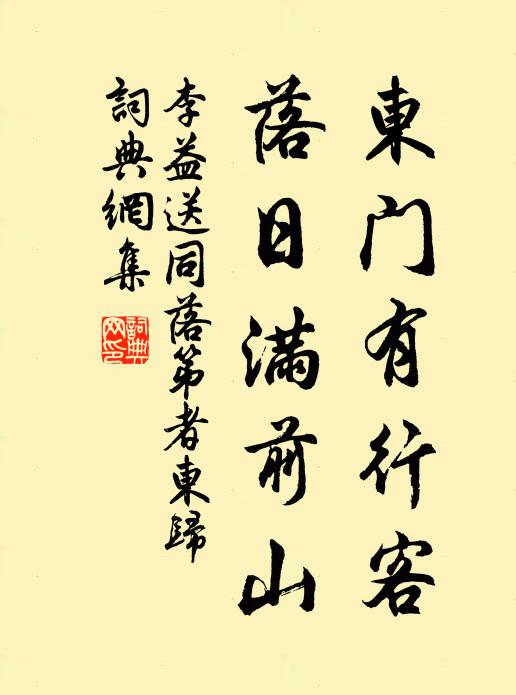 東門有行客
落日滿前山
李益送同落第者東歸
詞典網集
詞典
网印